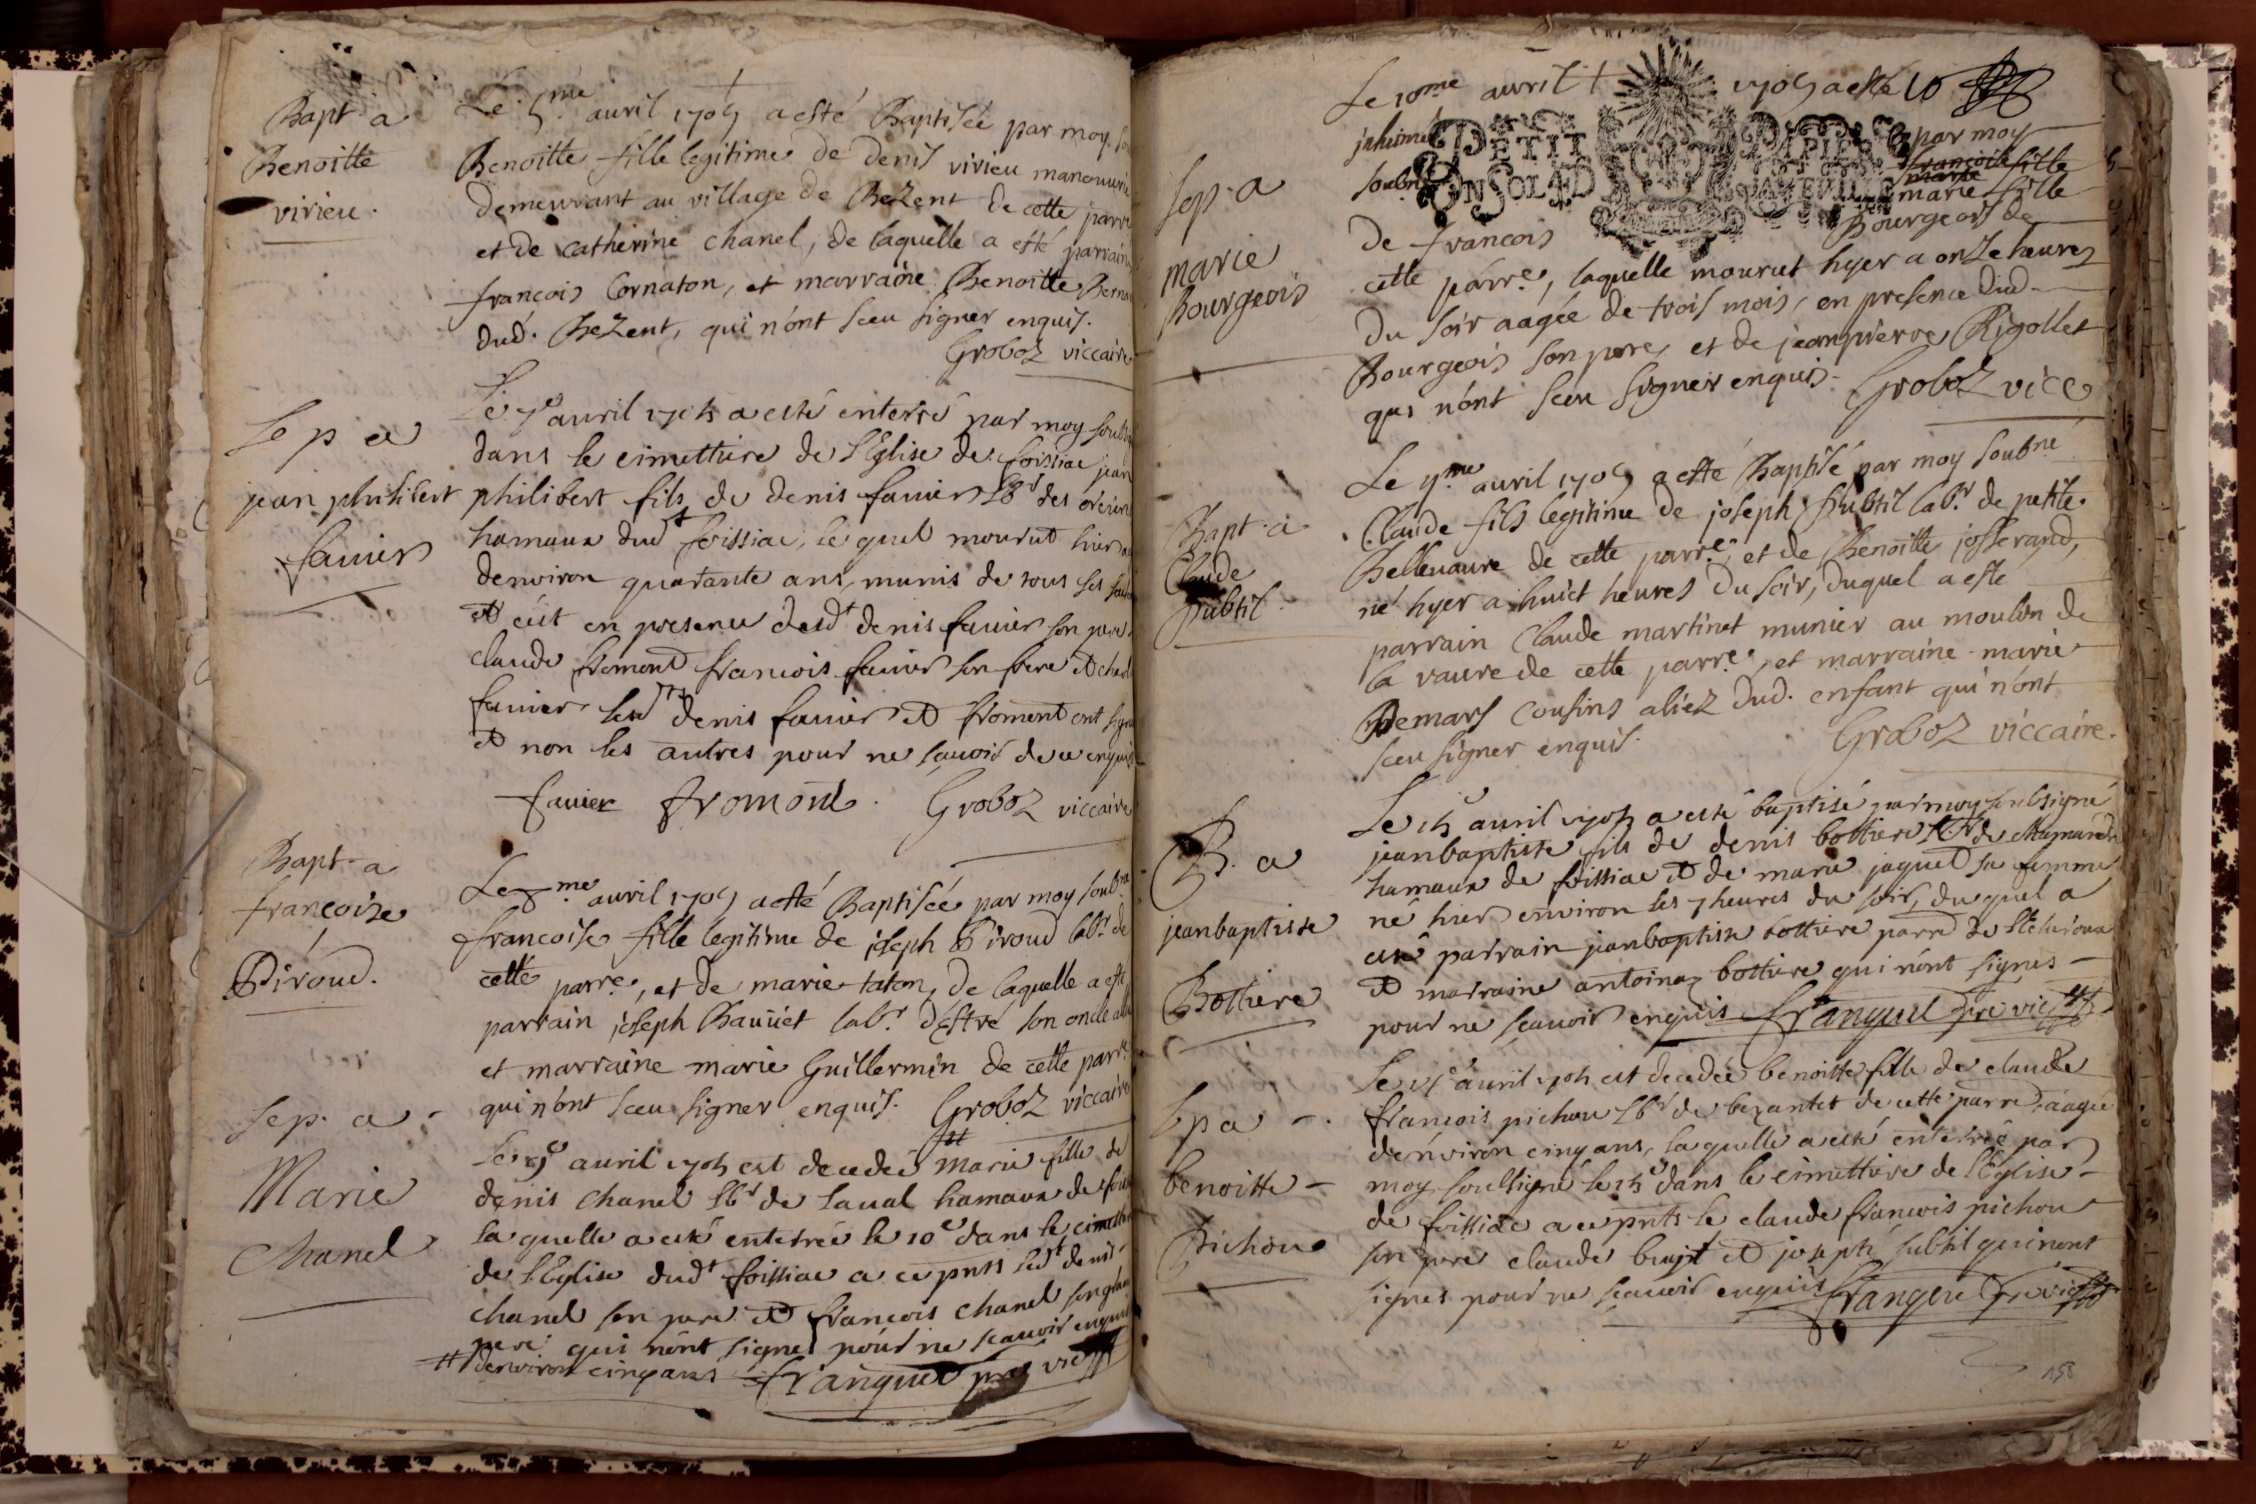 Bapt. a
Benoitte
virieu.
Le 5.me avril 1705 a esté Baptisée par moy
Benoitte fille legitime de denis virieu manouvrie
demeurant au village de Bezent de cette parr
et de catherine chanel, de laquelle a esté parrain
françois Cornaton, et marraine Benoitte
dud. Bezent, qui n'ont sceu signer enquis.
Groboz viccaire
Sep a
jean philibert
favier
Le 7e avril 1705 a esté enterré par moy soub
dans le cimettiere de l'Eglise de foissiac jean
philibert fils de denis favier lbr des
hamaux dudt foissiac, le quel mourut hier
denviron quarante ans, munis de tous ses
et cest en presence dudt denis favier son pere
claude fromont francois favier son frere et
favier lesdts denis favier et fromont ont signé
et non les autres pour ne scavoir de ce enquis
favier fromont. Groboz viccaire
Bapt. a
françoise
Piroud.
Le 8.me avril 1705 a esté Baptisée par moy soub.né
francoise fille legitime de joseph Piroud labr. de
cette parr.e, et de marie taton, de laquelle a esté
parrain joseph Bauiiet labr. d'Estré son oncle
et marraine marie Guillermin de cette parr.e
qui n'ont sceu signer enquis. Groboz viccaire
Sep. a
Marie
Chanel
Le 9e avril 1705 est decedée # marie fille de
denis chanel lbr de laval hamaux de
la quelle a esté enterrée le 10e dans le cimettiere
de l'Eglise dudt foissiac a ce pnts ledt denis
chanel son pere et francois chanel son grand
pere qui n'ont signé pour ne scavoir enquis
# denviron cinq ans franquet pre vic
Le 10me avril 1705 a esté 10
inhumé par moy
soubné
PETIT PAPIER
CONSOLAD
marie fille
Sep. a
marie
Bourgeois
de francois Bourgeois de
cette parr.e, laquelle mourut hyer a onze heures
du soir aagée de trois mois, en presence dud.
Bourgeois son pere, et de jeanpierre Rigollet
qui n'ont sceu signer enquis. Groboz vicc
Bapt. a
Claude
subtil.
Le 11.me avril 1705 a esté Baptisé par moy soubné
Claude fils legitime de joseph subtil labr. de petite
Bellevavre de cette parr.e, et de Benoitte josserand,
né hyer a huict heures du soir, duquel a esté
parrain Claude martinet munier au moulin de
la vavre de cette parr.e, et marraine marie
Demars cousins aliez dud. enfant qui n'ont
sceu signer enquis. Groboz viccaire.
B. a
jeanbaptiste
Bottiere
Le 15 avril 1705 a esté baptisé par moy soubsigné
jeanbaptiste fils de denis bottiere lbr de
hamaux de foissiac et de marie jaquet sa femme
né hier environ les 7 heures du soir, du quel a
esté parrain jeanbaptiste bottiere parre de
et marraine antoina bottiere qui n'ont signes
pour ne scavoir enquis franquet pre vic
Sp a
benoitte
Pichou
Le avril 1705 est decedée benoitte fille de claude
francois pichou lbr de bezantet de cette parre aagée
denviron cinq ans, laquelle a esté enterrée par
moy soussigné le 15e dans le cimettiere de l'Eglise
de foissiac a ce pnts le claude francois pichou
son pere claude et joseph subtil qui n'ont
signes pour ne scavoir enquis franquet pre vic
158